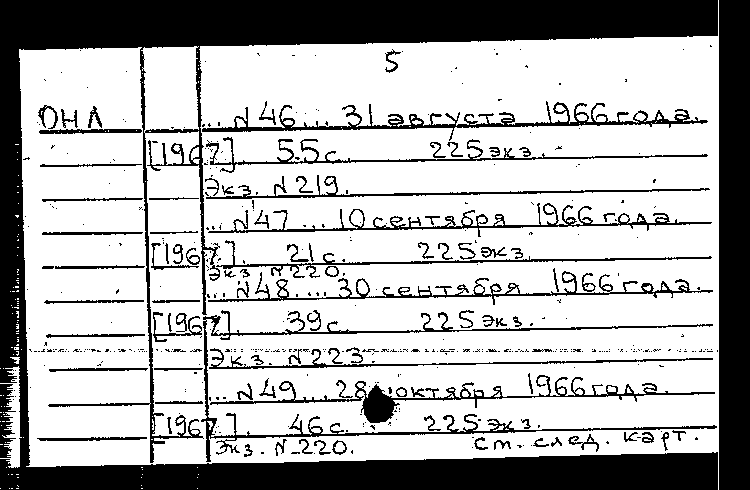 5
ОНЛ ... №46 ... 31 августа 1966 года.
[1967]. 55 с. 225 экз.
Экз. №219.
... №47 ... 10 сентября 1966 года.
[1967]. 21 с. 225 экз.
Экз. №220.
... №48 ... 30 сентября 1966 года.
[1967]. 39 с. 225 экз.
Экз. №223.
... №49 ... 28 октября 1966 года.
[1967]. 46 с. 225 экз.
Экз. №220. См. след. карт.